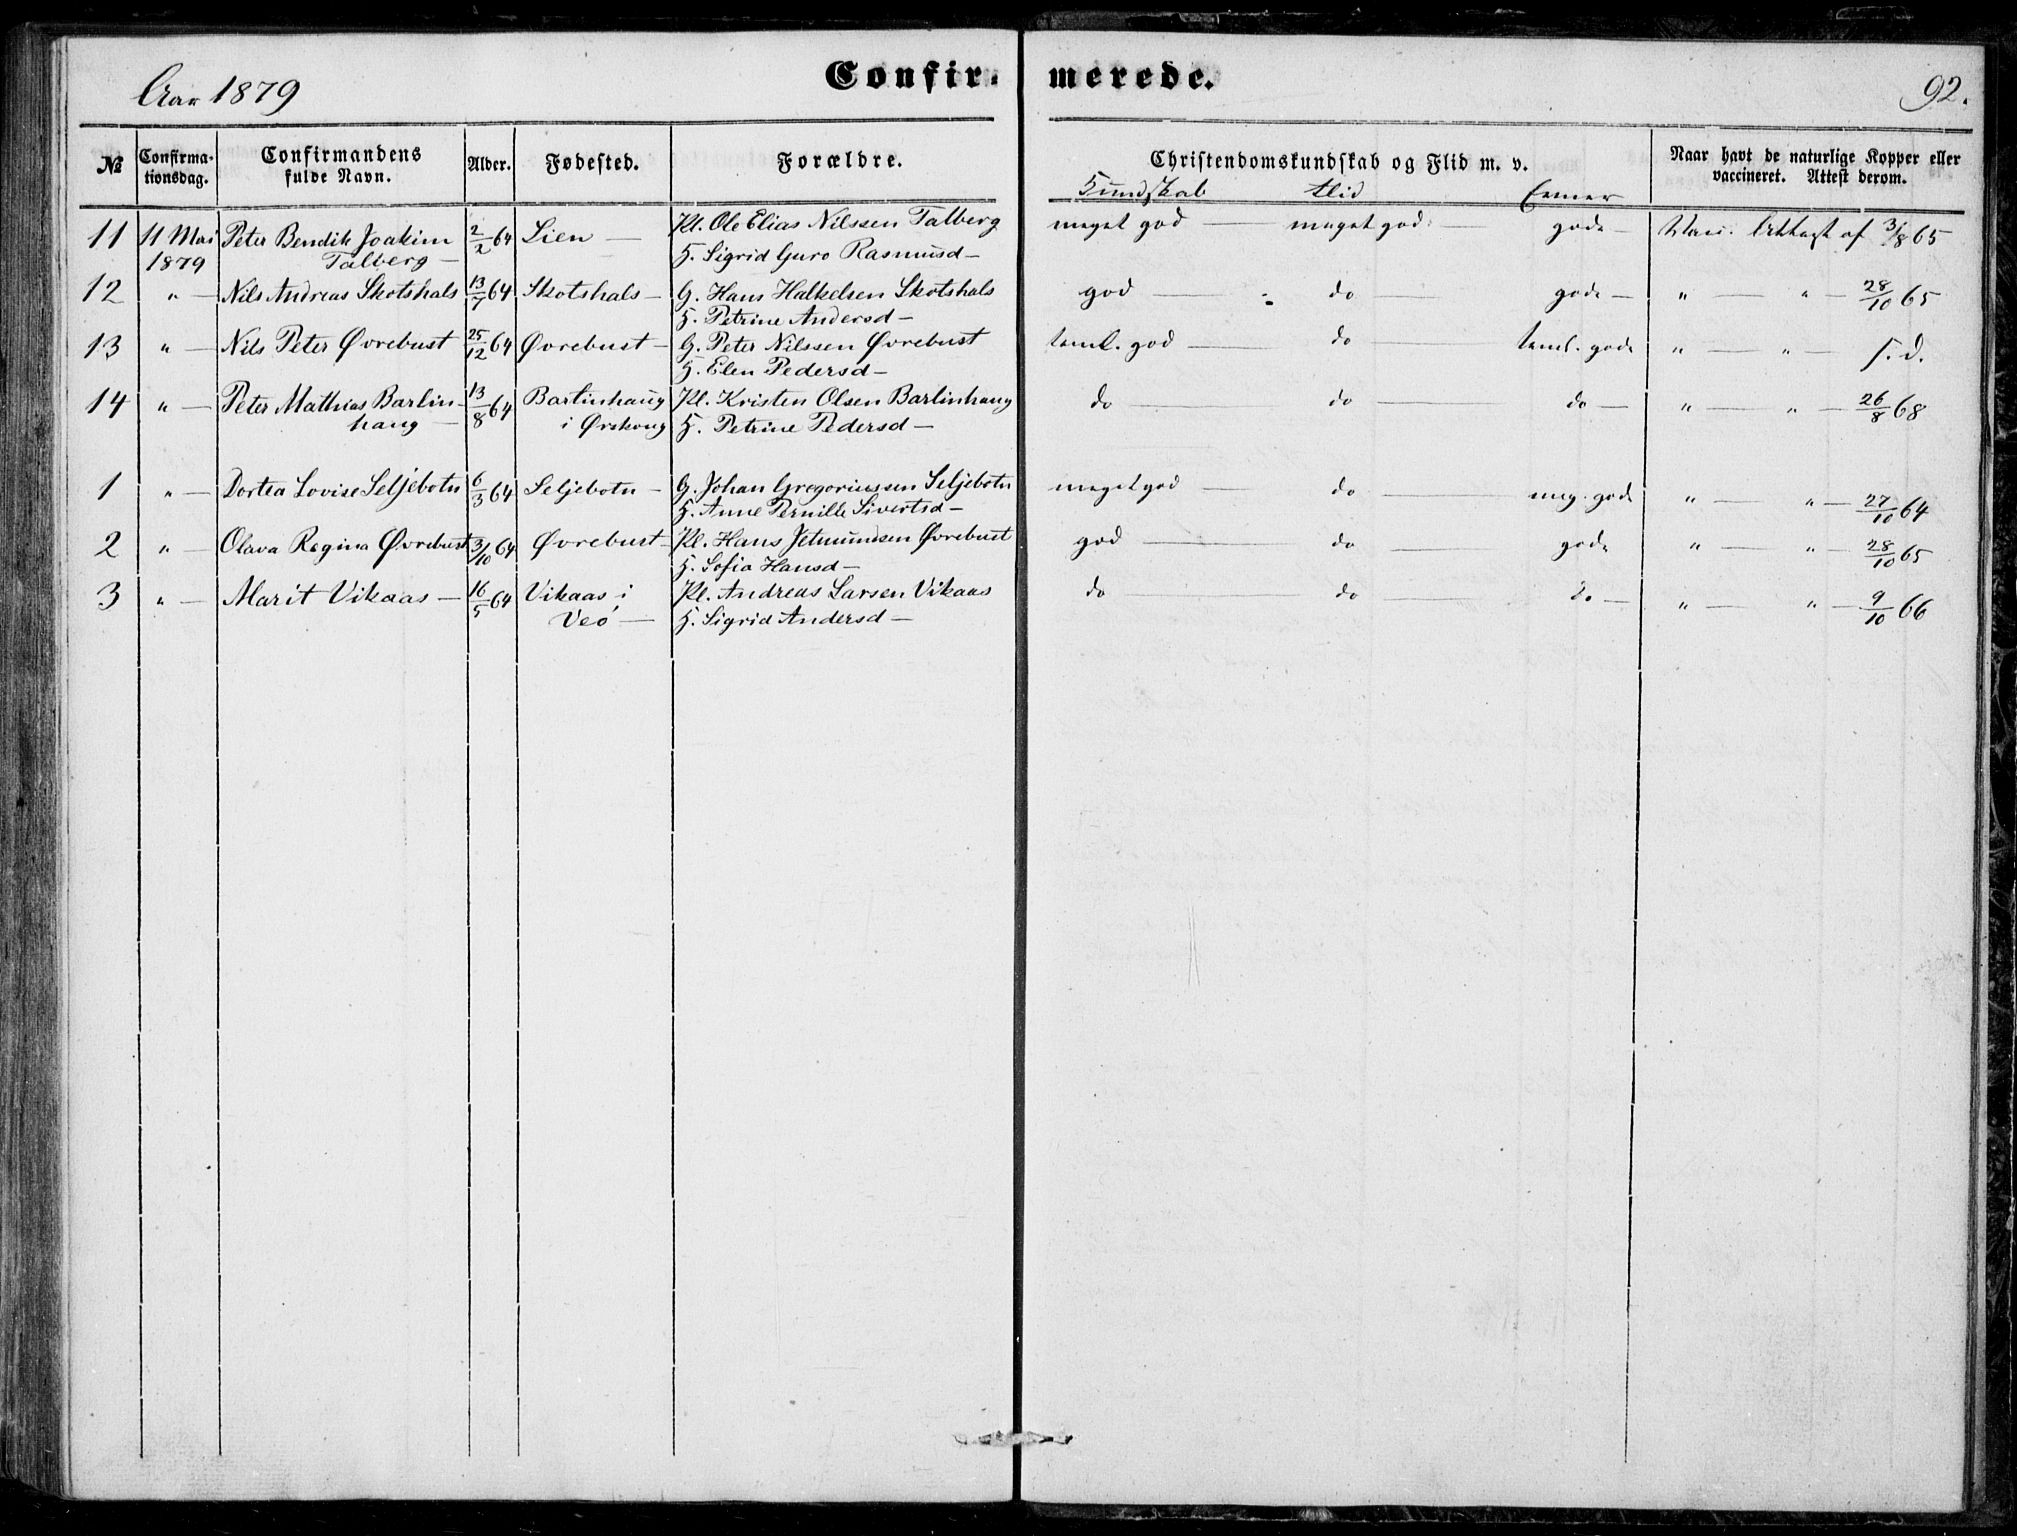 Aar 1879
Confir-
merede.
92.
№
Confirma-
tionsdag.
Confirmandens
fulde Navn.
Alder.
Fødested.
Forældre.
Christendomskundskab og Flid m. v.
Kundskab flid Evner
Naar havt de naturlige Kopper eller
vaccineret. Attest derom.
11 11 Mai Peter Bendik Joakim 2/2 64 Lien — Kl. Ole Elias Nilssen Talberg meget god — meget god — gode — Vacc. Attest af 3/8 65
1879 Talberg — H. Sigrid Guro Rasmusd —
12 " — Nils Andreas Skotshals 13/7 64 Skotshals — G. Hans Halkelsen Skotshals god — do — gode — " — " — 28/10 65
H. Petrine Andersd —
13 " — Nils Peter Øvrebust 25/12 64 Øvrebust — G. Peter Nilssen Øvrebust teml. god — do — teml. gode " — " — s. d.
H. Elen Pedersd —
14 " — Peter Mathias Barlin- 13/8 64 Barlinhaug Kl. Kristen Olsen Barlinhaug do — do — do — " — " — 26/8 68
haug — i Ørskoug H. Petrine Pedersd —
1 " — Dortea Lovise Seljebotn 6/3 64 Seljebotn — G. Johan Gregoriussen Seljebotn meget god — do — meg. gode " — " — 27/10 64
H. Anne Pernille Sivertsd —
2 " — Olava Regina Øvrebust 3/10 64 Øvrebust — Kl. Hans Jetmundsen Øvrebust god — do — gode " — " — 28/10 65
H. Sofia Hansd —
3 " — Marit Vikaas — 16/5 64 Vikaas i Kl. Andreas Larsen Vikaas do — do — do — " — " — 9/10 66
Veø — H. Sigrid Andersd —